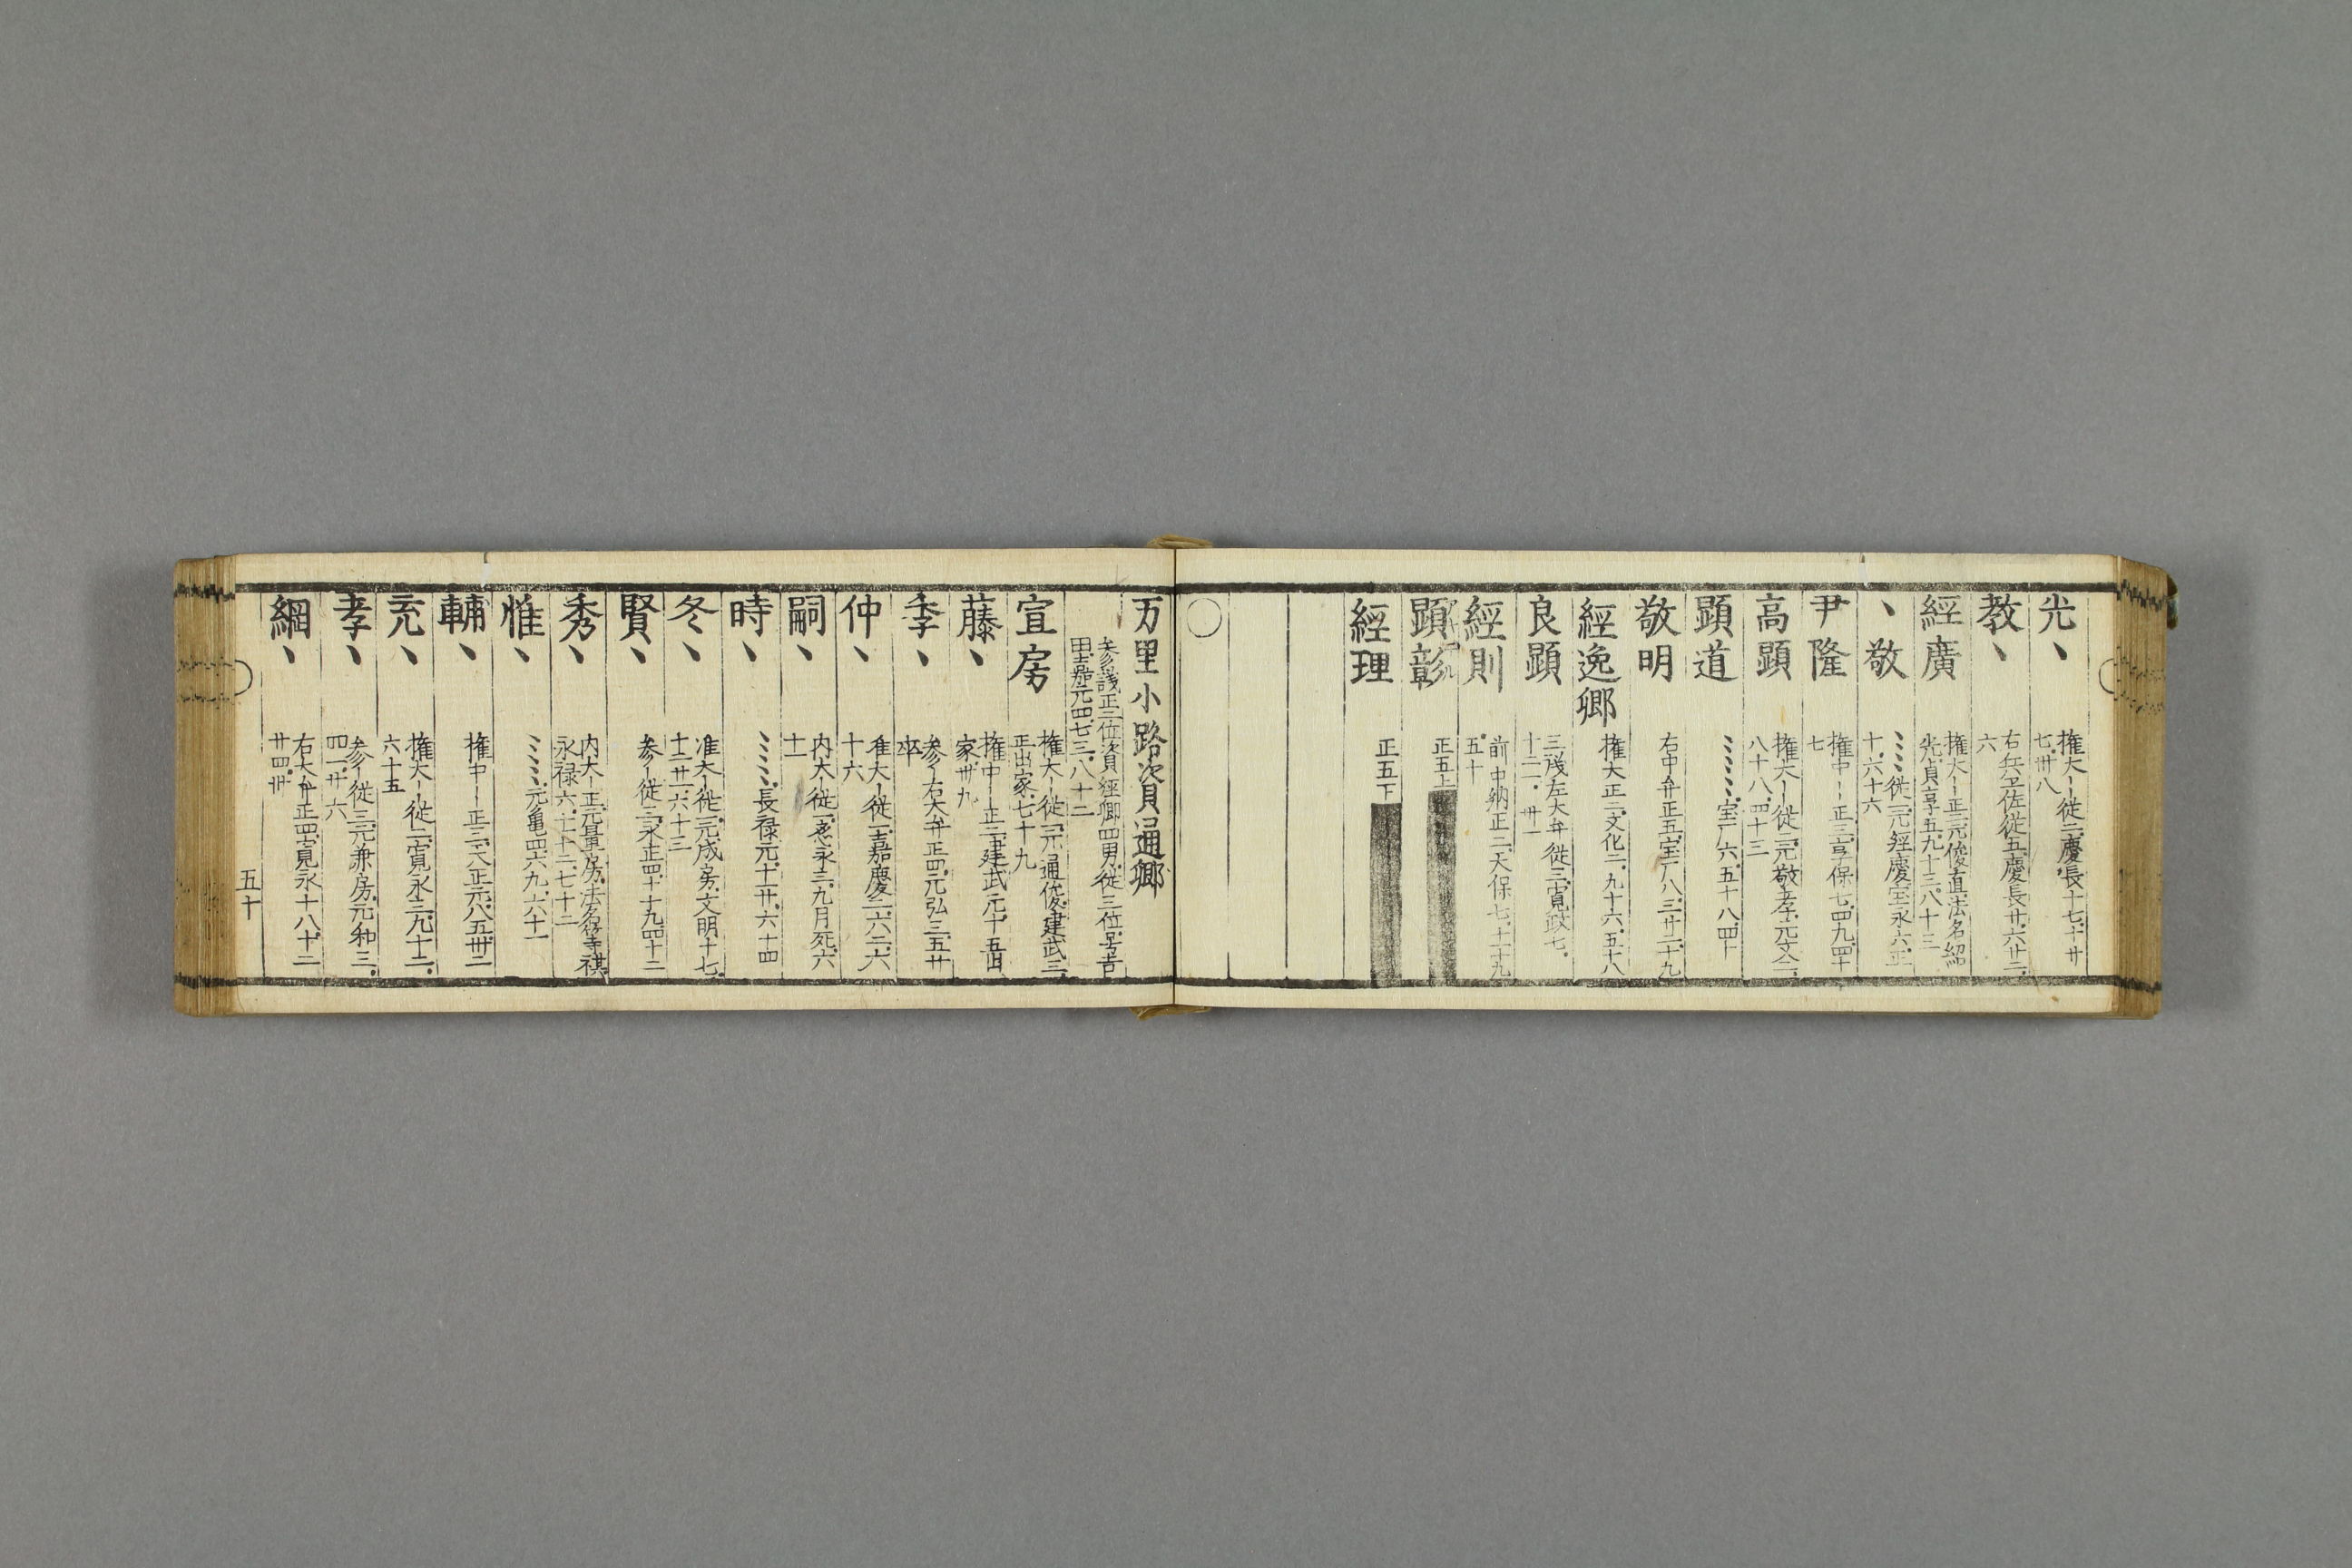 光丶
権大〡従二慶長十七十廿
七卅八
教丶
右兵卫佐従五慶長廿六廿二
六
經廣
権大〡正二元俊直法名紹
光貞享五九十三八十三
丶敬
ミミミ従一元經慶宝永六正
十六十六
尹隆
権中〡正三享保七四九四十
七
高顕
権大〡従一元敬孝元文二
八十八四十三
顕道
宝厂六五十八四十
敬明
右中弁正五宝厂八三廿二十九
經逸卿
権大正二文化二九十六五十八
良顕
三議左大弁従三寛政七
十二卅一
經則
前中納正二天保七十十九
五十
顕彰
正五上
經理
正五下
万里小路資通卿
参議正三位資經卿四男従三位号吉
田嘉元四七三八十二
宣房
権大〡従一元通俊建武三
正出家七十九
藤丶
権中〡正二建武元十五出
家卅九
季丶
参〡右大弁正四元弘三五廿
卒
仲丶
准大〡従一嘉慶二六二六
十六
嗣丶
内大〡従一應永三九月死六
十一
時丶
ミミミ長禄元十一廿六十四
冬丶
准大〡従一元成房文明十七
十二廿一六十三
賢丶
参〡従三永正四十十九四十二
秀丶
内大〡正二元量房法名等祺
永禄六十一十二七十二
惟丶
ミミミ元亀四六九六十一
輔丶
権中〡正三天正元八五卅二
充丶
権大〡従二寛永三九十二
六十五
孝丶
参〡従三元兼房元和三
四一廿六
綱丶
右大弁正四寛永十八十二
廿四卅
五十